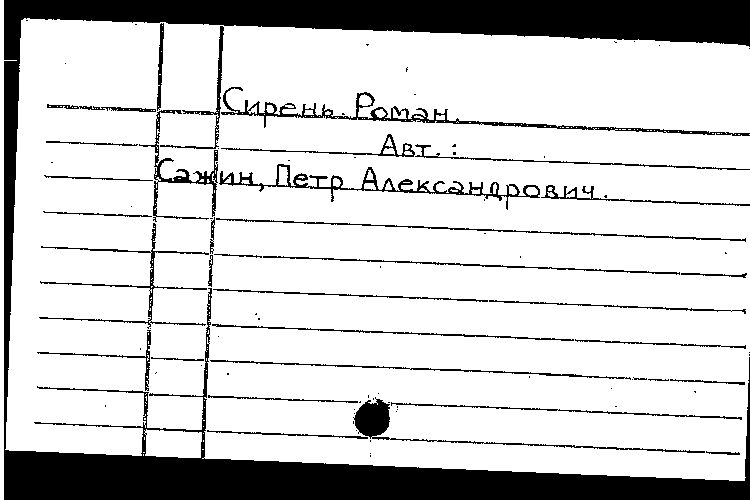 Сирень. Роман.
Авт.:
Сажин, Петр Александрович.